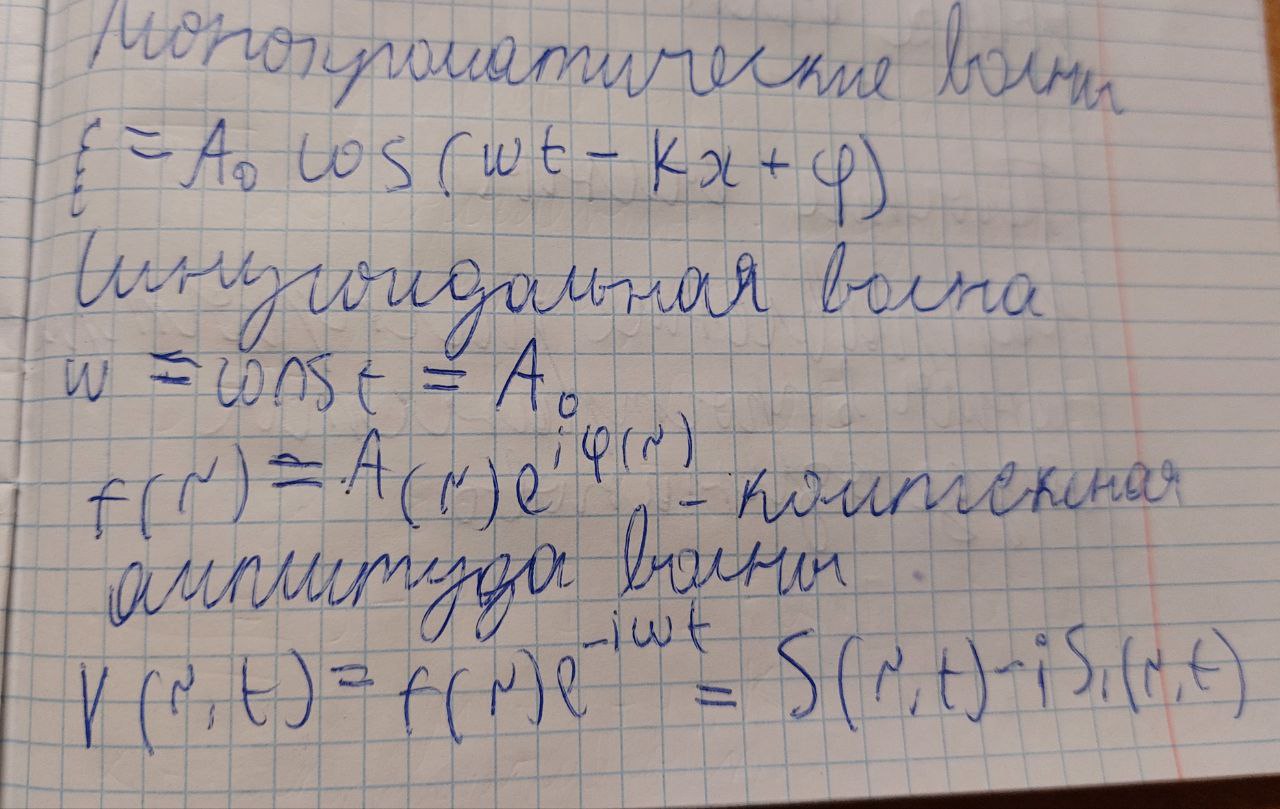 Монохроматические волны
ξ = A₀ cos(wt - kx + φ)
Синусоидальная волна
w = const = A₀
f(r) = A(r)e^{iφ(r)} - комплексная
амплитуда волны
V(r,t) = f(r)e^{-iwt} = S(r,t) - iS₁(r,t)